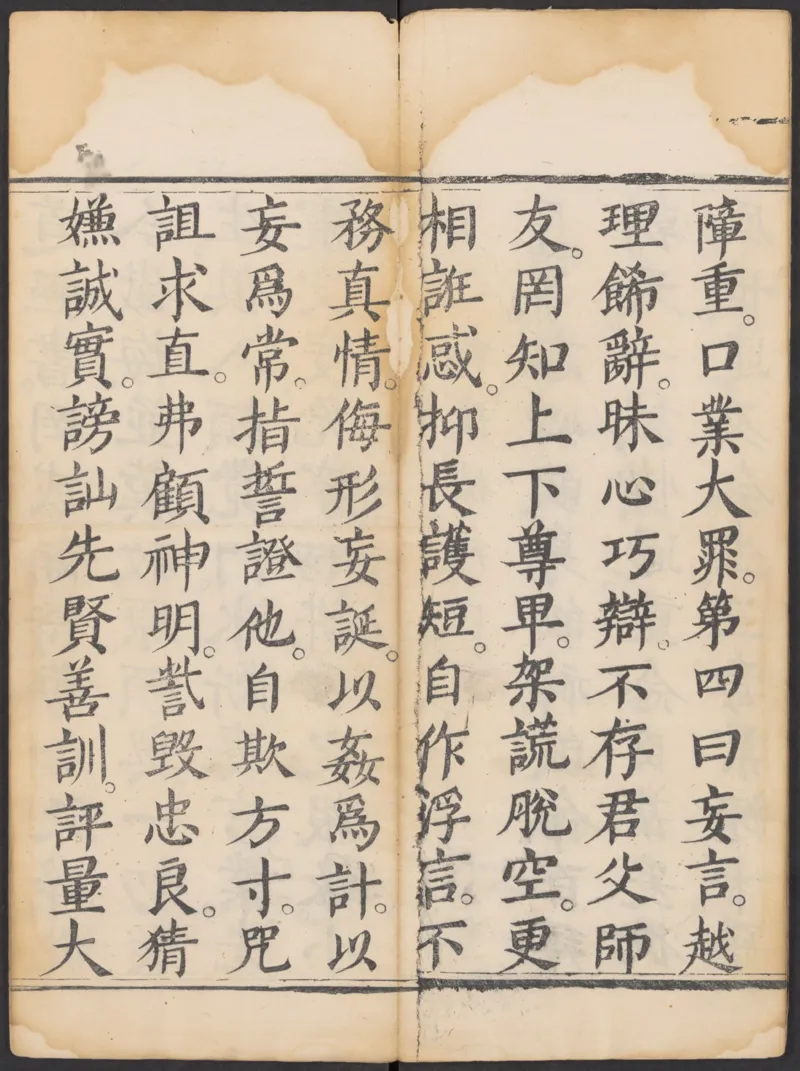 障重。口業大罪。第四曰妄言。越
理餙辭。昧心巧辯。不存君父師
友。罔知上下尊卑。架謊脫空。更
相誑惑。抑長護短。自作浮言。不
務真情。侮形妄誕。以姦爲計。以
妄爲常。指誓證他。自欺方寸。咒
詛求直。弗顧神明。訾毀忠良。猜
嫌誠實。謗訕先賢善訓。評量大